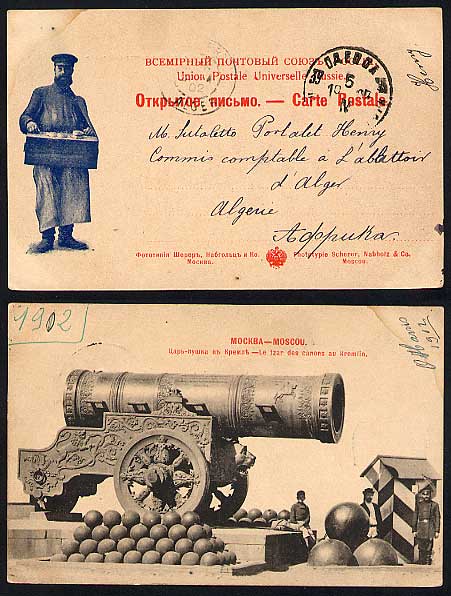 ВСЕМІРНЫЙ ПОЧТОВЫЙ СОЮЗЪ
Union Postale Universelle Russie
Открытое письмо. — Carte Postale
ОДЕССА
5
02
M.
Portalet Henry
Commis comptable à L'abattoir
d'Alger
Algerie
Африка.
Фототипія Шереръ, Набгольцъ и Ко.
Москва.
Phototypie Scherer, Nabholz & Co.
Moscou.
1902
МОСКВА—MOSCOU.
Царь-пушка въ Кремлѣ.—Le Tzar des canons au Kremlin.